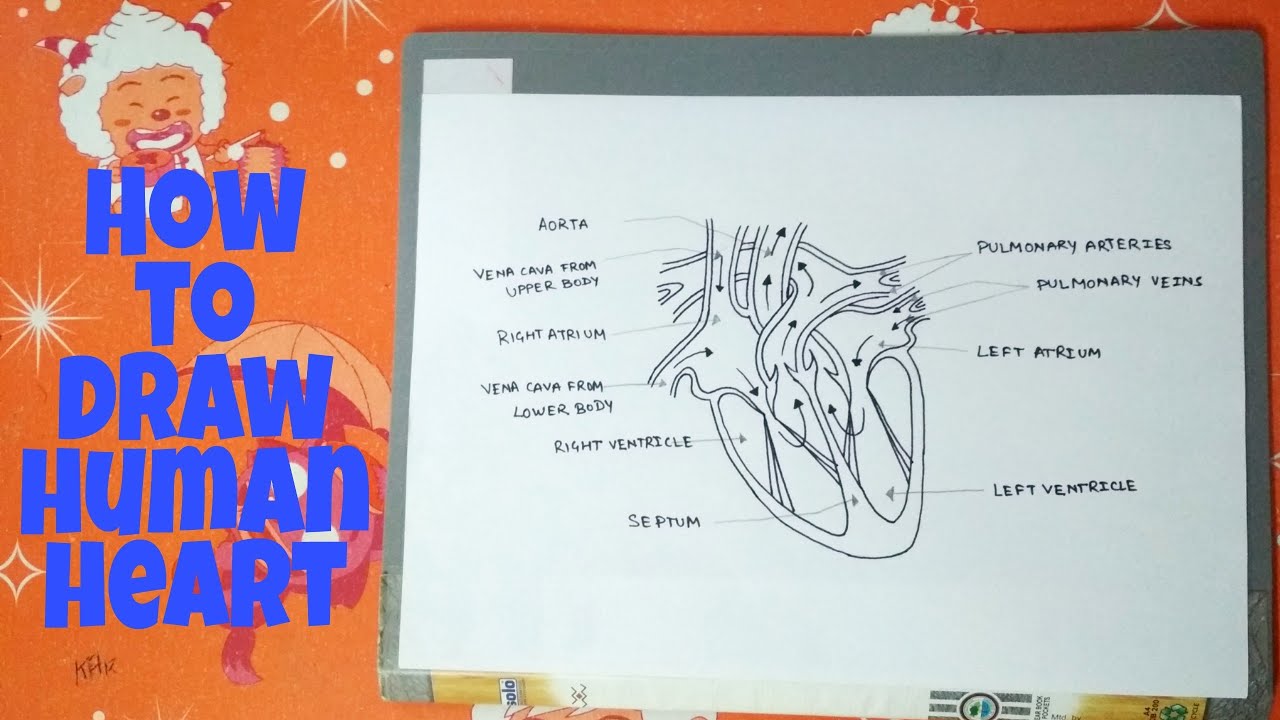 HOW
TO
DRAW
HUMAN
HEART
AORTA
VENA CAVA FROM
UPPER BODY
RIGHT ATRIUM
VENA CAVA FROM
LOWER BODY
RIGHT VENTRICLE
SEPTUM
PULMONARY ARTERIES
PULMONARY VEINS
LEFT ATRIUM
LEFT VENTRICLE
solo